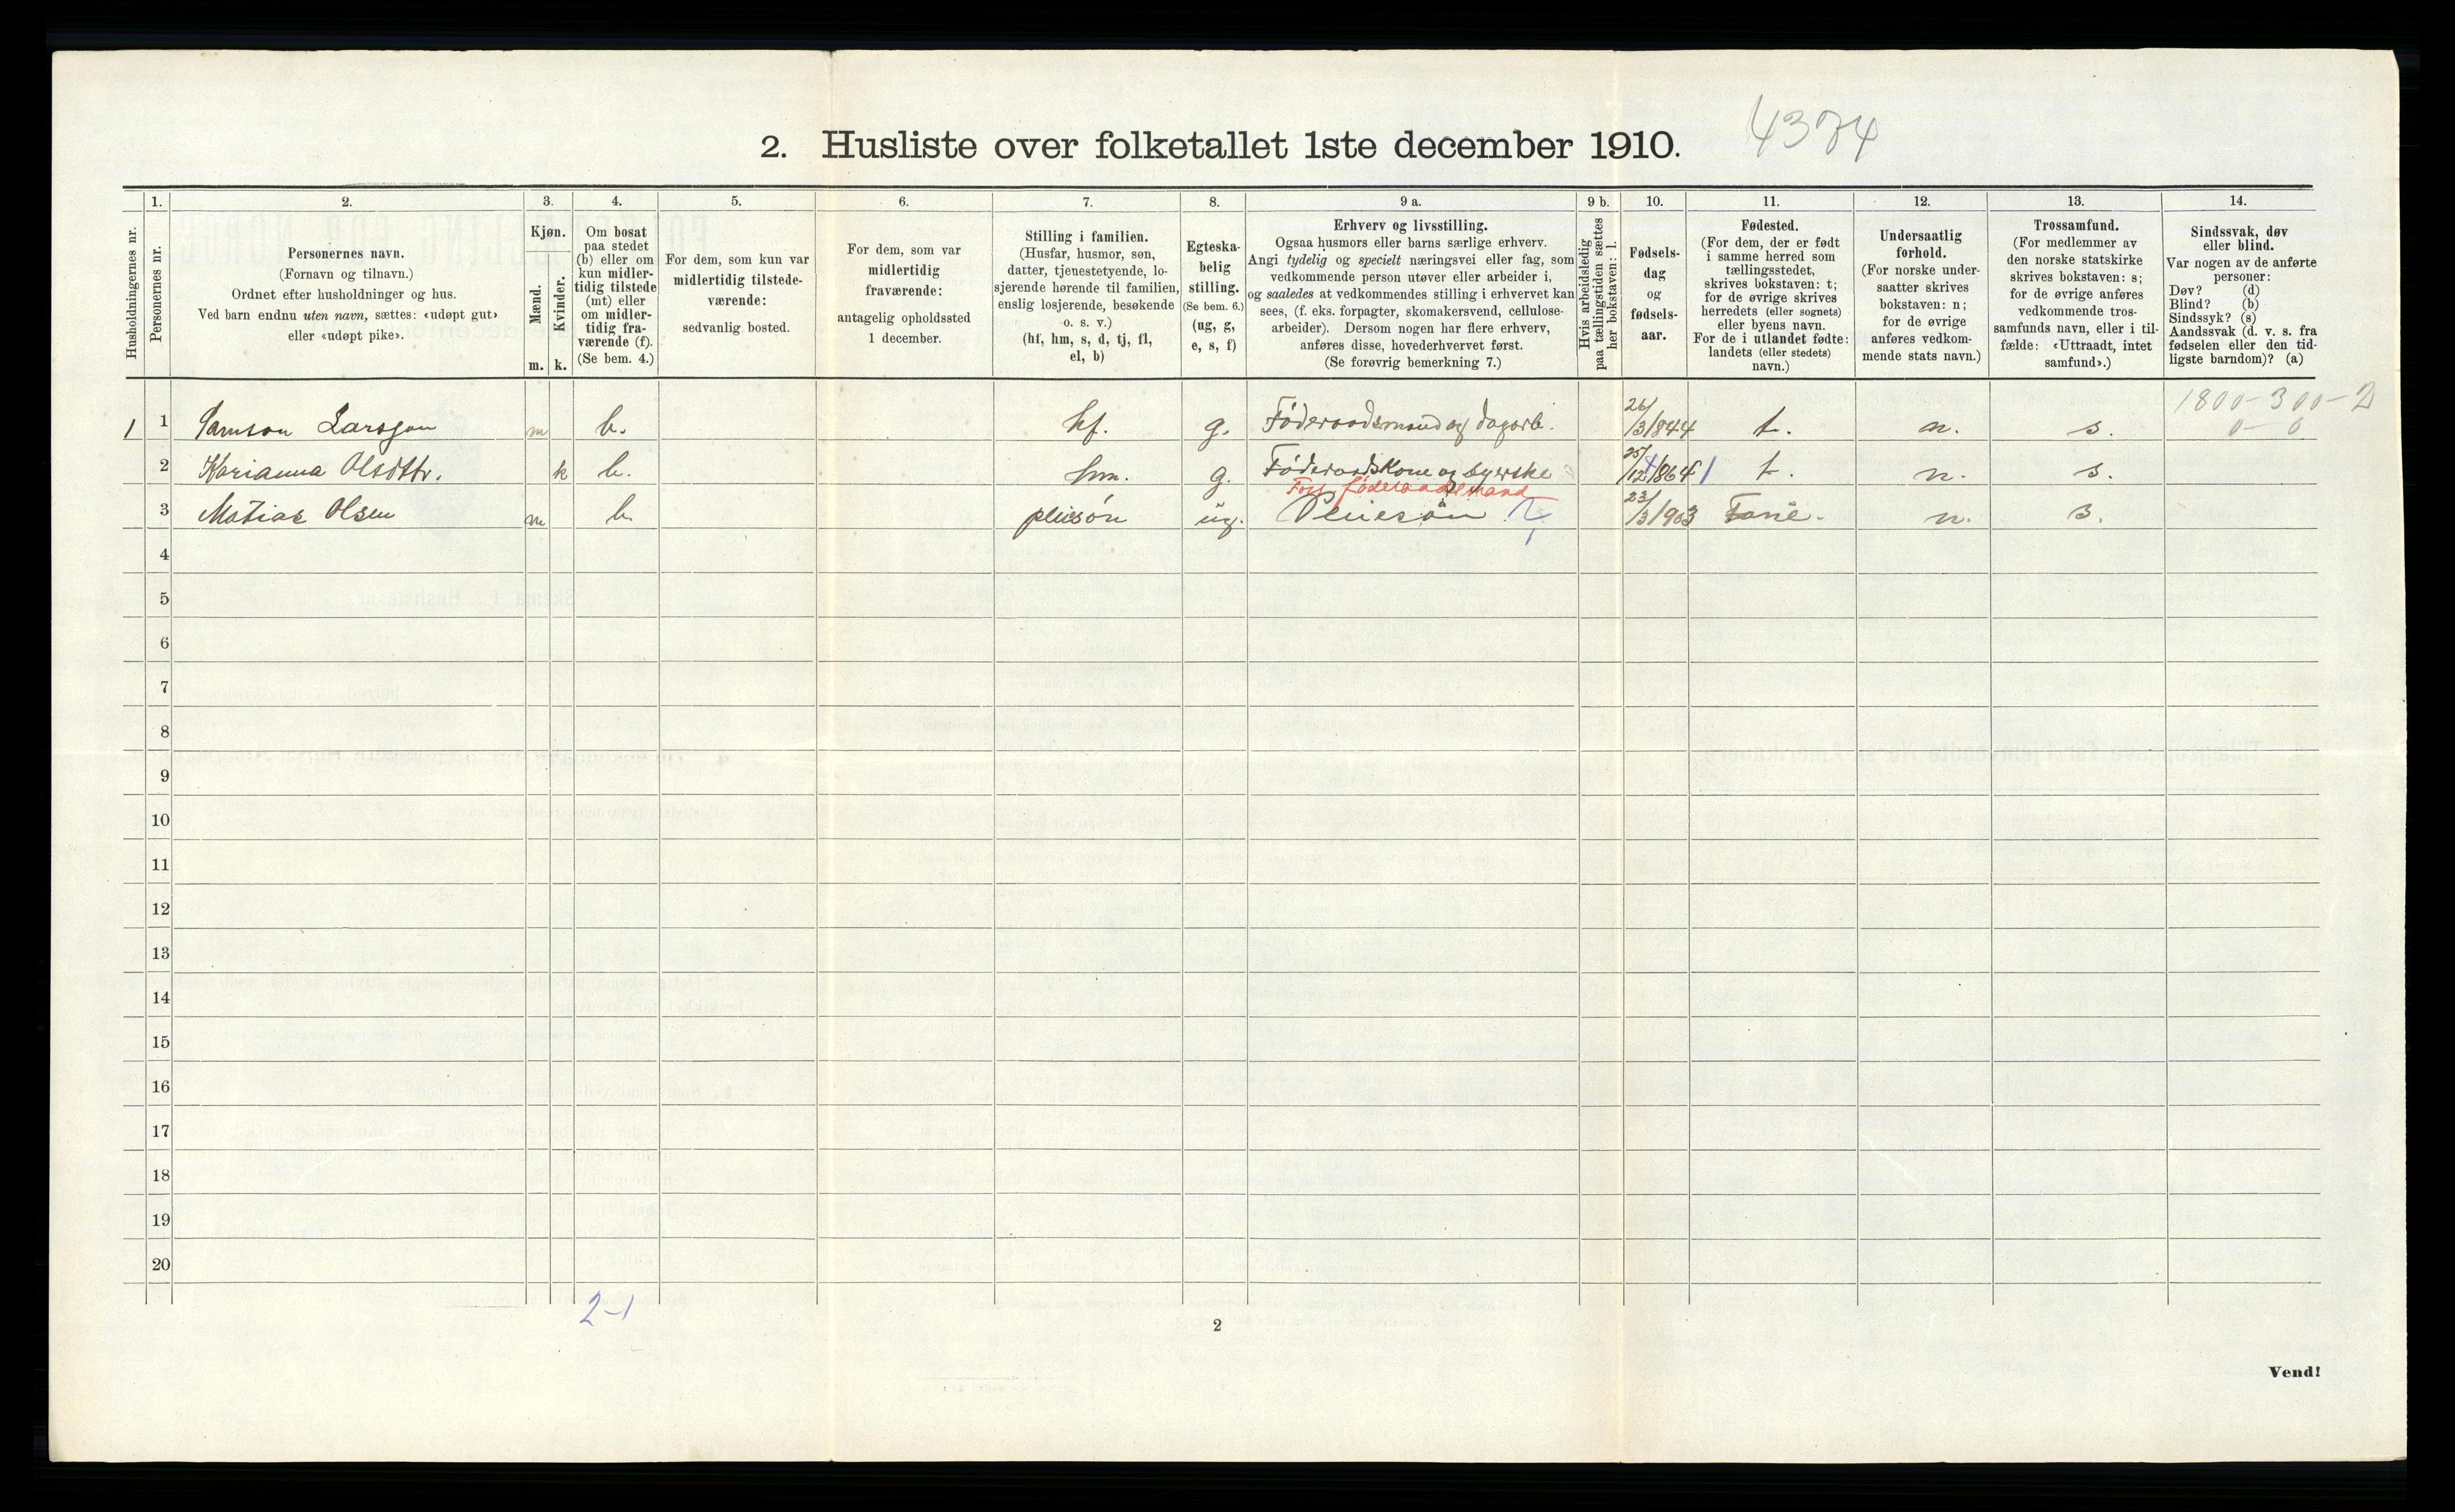 2. Husliste over folketallet 1ste december 1910.
4374
1. 2. 3. 4. 5. 6. 7. 8. 9 a. 9 b. 10. 11. 12. 13. 14.
Husholdningernes nr.
Personernes nr.
Personernes navn.
(Fornavn og tilnavn.)
Ordnet efter husholdninger og hus.
Ved barn endnu uten navn, sættes: «udøpt gut»
eller «udøpt pike».
Kjøn.
Mænd.
Kvinder.
m. k.
Om bosat
paa stedet
(b) eller om
kun midler-
tidig tilstede
(mt) eller
om midler-
tidig fra-
værende (f).
(Se bem. 4.)
For dem, som kun var
midlertidig tilstede-
værende:
sedvanlig bosted.
For dem, som var
midlertidig
fraværende:
antagelig opholdssted
1 december.
Stilling i familien.
(Husfar, husmor, søn,
datter, tjenestetyende, lo-
sjerende hørende til familien,
enslig losjerende, besøkende
o. s. v.)
(hf, hm, s, d, tj, fl,
el, b)
Egteska-
belig
stilling.
(Se bem. 6.)
(ug, g,
e, s, f)
Erhverv og livsstilling.
Ogsaa husmors eller barns særlige erhverv.
Angi tydelig og specielt næringsvei eller fag, som
vedkommende person utøver eller arbeider i,
og saaledes at vedkommendes stilling i erhvervet kan
sees, (f. eks. forpagter, skomakersvend, cellulose-
arbeider). Dersom nogen har flere erhverv,
anføres disse, hovederhvervet først.
(Se forøvrig bemerkning 7.)
Hvis arbeidsledig
paa tællingstiden sættes
her bokstaven: l.
Fødsels-
dag
og
fødsels-
aar.
Fødested.
(For dem, der er født
i samme herred som
tællingsstedet,
skrives bokstaven: t;
for de øvrige skrives
herredets (eller sognets)
eller byens navn.
For de i utlandet fødte:
landets (eller stedets)
navn.)
Undersaatlig
forhold.
(For norske under-
saatter skrives
bokstaven: n;
for de øvrige
anføres vedkom-
mende stats navn.)
Trossamfund.
(For medlemmer av
den norske statskirke
skrives bokstaven: s;
for de øvrige anføres
vedkommende tros-
samfunds navn, eller i til-
fælde: «Uttraadt, intet
samfund».)
Sindssvak, døv
eller blind.
Var nogen av de anførte
personer:
Døv? (d)
Blind? (b)
Sindssyk? (s)
Aandssvak (d. v. s. fra
fødselen eller den tid-
ligste barndom)? (a)
1800-300-2
0-0
1 1 Samson Larsson m b. hf. g. Føderaadsmand og dagarb. 26/3/844 t. n. s.
2 Karianna Olsdttr. k b. hm. g. Føderaadskone og syerske 25/12/864 1 t. n. s.
Fors. føderaadsmand
3 Matias Olsen m b. pleiesøn ug. Pleiesøn 23/3/903 n. s.
4
5
6
7
8
9
10
11
12
13
14
15
16
17
18
19
20
2-1
2
Vend!